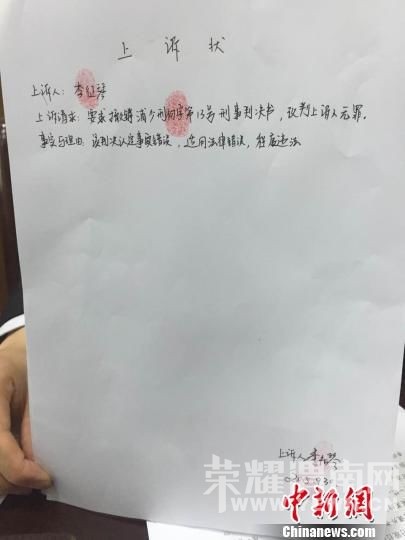 上诉状
上诉人：李红琴
上诉请求：要求撤销浦少刑初字第13号刑事判决书，改判上诉人无罪。
事实与理由：该判决认定事实错误，适用法律错误，程序违法
上诉人 李红琴
荣耀渭南网
中新网
Chinanews.com